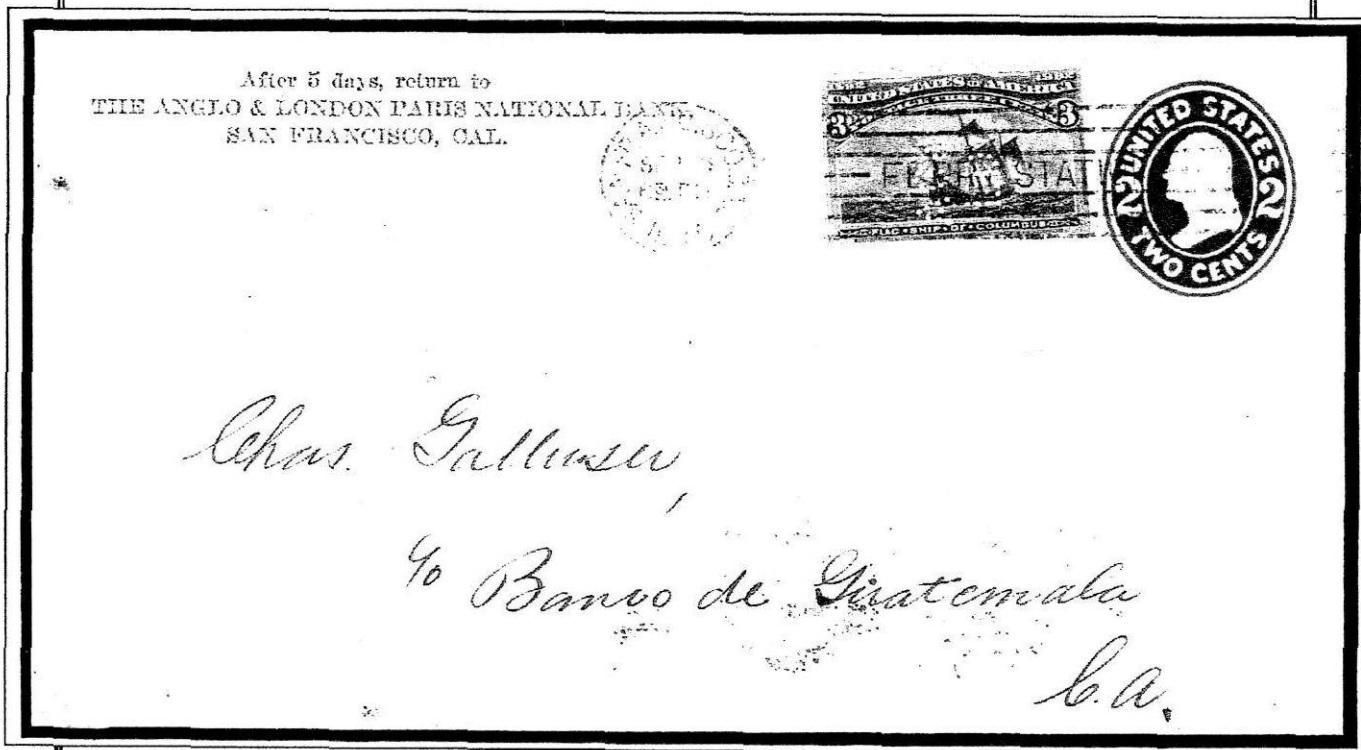 After 5 days, return to
THE ANGLO & LONDON PARIS NATIONAL BANK,
SAN FRANCISCO, CAL.
UNITED STATES OF AMERICA
3 3
FLAG·SHIP·OF·COLUMBUS
STAT
UNITED STATES
2 2
TWO CENTS
Chas. Galluser,
c/o Banco de Guatemala
C.A.